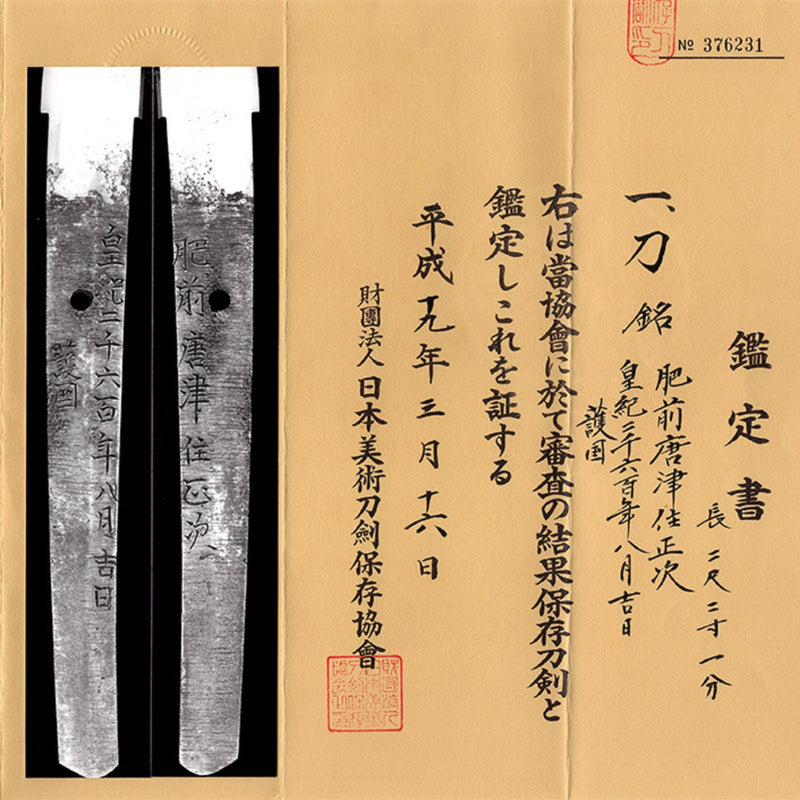 № 376231
鑑定書
一、刀 銘 肥前唐津住正次
皇紀二千六百年八月吉日
護国
長 二尺二寸一分
右は當協會に於て審査の結果保存刀剣と
鑑定しこれを証する
平成十九年三月十六日
財團法人 日本美術刀劍保存協會
肥前唐津住正次
皇紀二千六百年八月吉日
護國